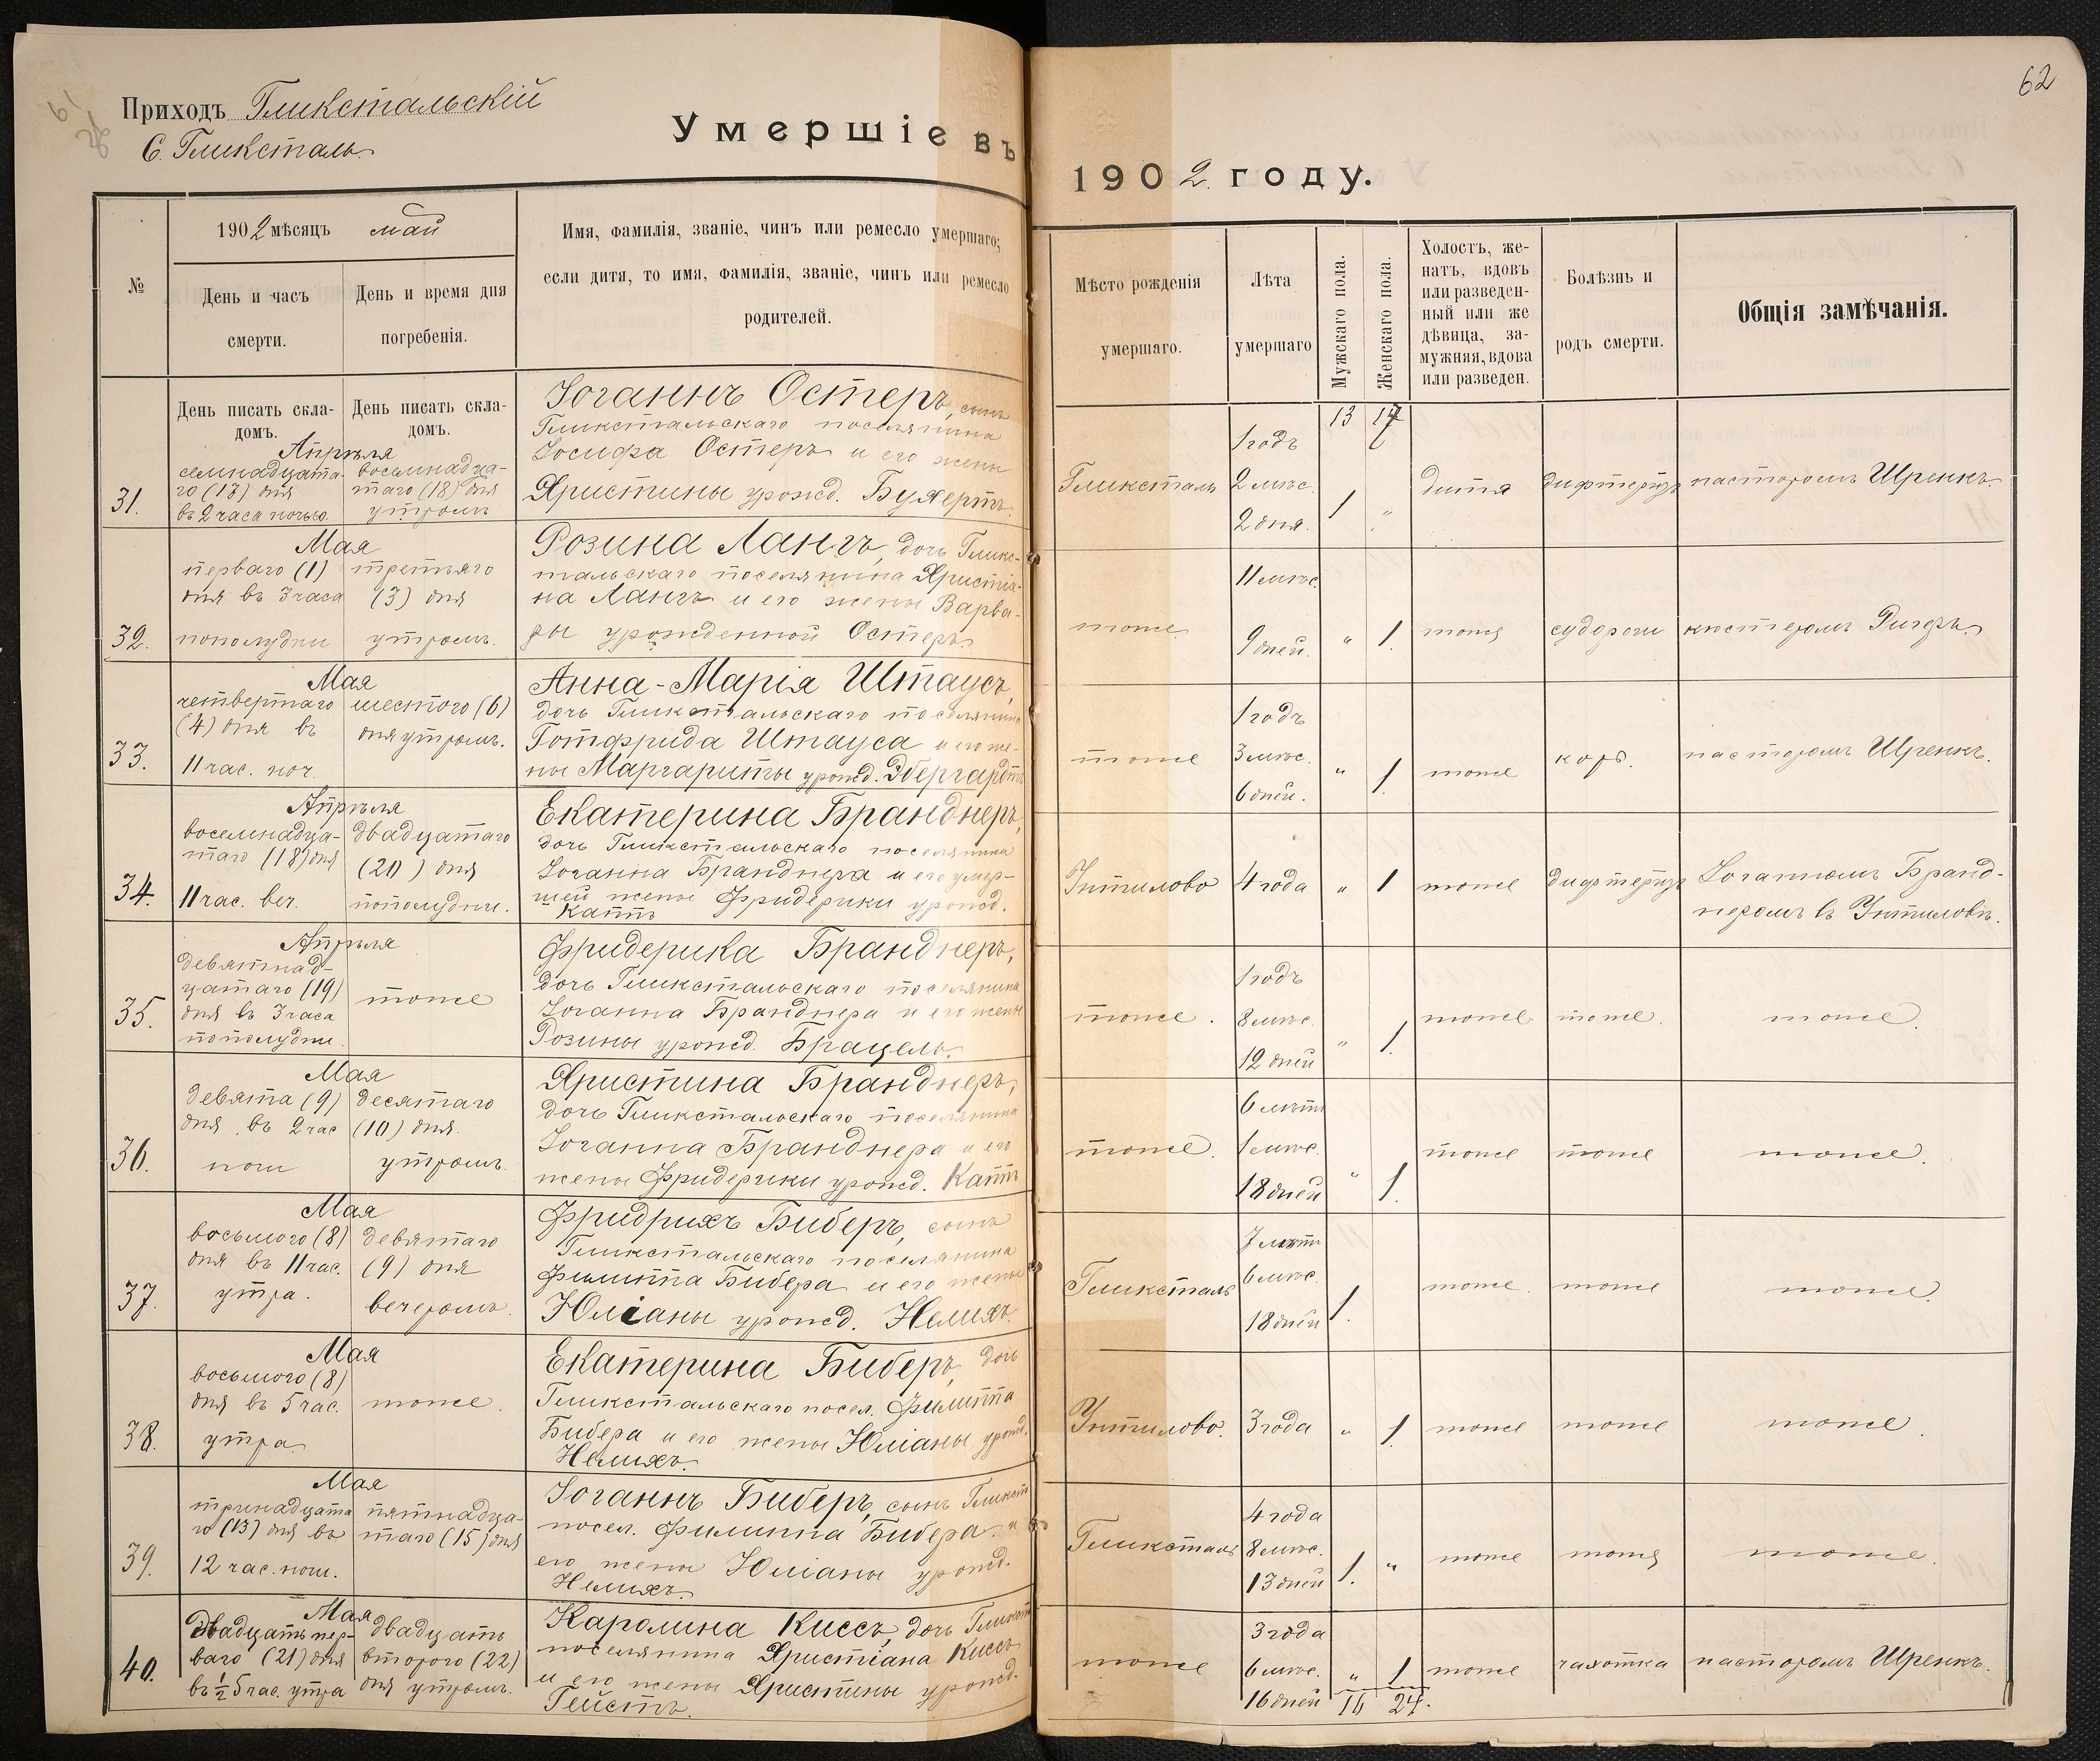 62
Приходъ Гликстальскій
С. Гликсталь.
Умершіе въ
1902 году.
№
1902 мѣсяцъ май
День и часъ
смерти.
День и время дня
погребенія.
Имя, фамилія, званіе, чинъ или ремесло умершаго;
если дитя, то имя, фамилія, званіе, чинъ или ремесло
родителей.
Мѣсто рожденія
умершаго.
Лѣта
умершаго
Мужскаго пола.
Женскаго пола.
Холостъ, же-
натъ, вдовъ
или разведен-
ный или же
дѣвица, за-
мужняя, вдова
или разведен.
Болѣзнь и
родъ смерти.
Общія замѣчанія.
День писать скла-
домъ.
День писать скла-
домъ.
13 17
31.
Апрѣля
семнадцата-
го (17) дня
въ 2 часа ночью.
восемнадца-
таго (18) дня
утромъ
Іоганнъ Остеръ, сынъ
Гликстальскаго поселянина
Іосифа Остеръ и его жены
Христины урожд. Бухертъ.
Гликсталь
1 годъ
2 мѣс.
2 дня.
1
"
дитя
дифтеритъ
пасторомъ Шренкъ.
32.
Мая
перваго (1)
дня въ 3 часа
пополудни
третьяго
(3) дня
утромъ.
Розина Лангъ, дочь Гликс-
тальскаго поселянина Христіа-
на Лангъ и его жены Варва-
ры урожденной Остеръ.
тоже
11 мѣс.
9 дней.
"
1.
тоже
судороги
кюстеромъ Ригеръ.
33.
Мая
четвертаго
(4) дня въ
11 час. ноч.
шестого (6)
дня утромъ.
Анна-Марія Штаусъ,
дочь Гликстальскаго поселянина
Готфрида Штауса и его же-
ны Маргариты урожд. Эбергардтъ
тоже
1 годъ
3 мѣс.
6 дней.
"
1.
тоже
корь.
пасторомъ Шренкъ.
34.
Апрѣля
восемнадца-
таго (18) дня
11 час. веч.
двадцатаго
(20) дня
пополудни.
Екатерина Бранднеръ,
дочь Гликстальскаго поселянина
Іоганна Бранднера и его умер-
шей жены Фридерики урожд.
Каттъ
Унтилово
4 года
"
1
тоже
дифтеритъ
Іоганномъ Бранд-
неромъ въ Унтиловѣ.
35.
Апрѣля
девятнад-
цатаго (19)
дня въ 3 часа
пополудни.
тоже
Фридерика Бранднеръ,
дочь Гликстальскаго поселянина
Іоганна Бранднера и его жены
Розины урожд. Брацель.
тоже.
1 годъ
8 мѣс.
12 дней
"
1.
тоже
тоже.
тоже.
36.
Мая
девята (9)
дня въ 2 час
ночи
десятаго
(10) дня.
утромъ.
Христина Бранднеръ,
дочь Гликстальскаго поселянина
Іоганна Бранднера и его
жены Фридерики урожд. Каттъ
тоже.
6 лѣтъ
1 мѣс.
18 дней
"
1.
тоже
тоже
тоже.
37.
Мая
восьмого (8)
дня въ 11 час.
утра.
девятаго
(9) дня
вечеромъ.
Фридрихъ Биберъ, сынъ
Гликстальскаго поселянина
Филиппа Бибера и его жены
Юліаны урожд. Немихъ.
Гликсталь
7 лѣтъ
6 мѣс.
18 дней
1.
тоже.
тоже
тоже.
38.
Мая
восьмого (8)
дня въ 5 час.
утра
тоже.
Екатерина Биберъ, дочь
Гликстальскаго посел. Филиппа
Бибера и его жены Юліаны урожд.
Немихъ.
Унтилово.
3 года
"
1.
тоже
тоже
тоже.
39.
Мая
тринадцата
го (13) дня въ
12 час. ночи.
пятнадца-
таго (15) дня
Іоганнъ Биберъ, сынъ Гликст
посел. Филиппа Бибера и
его жены Юліаны урожд.
Немихъ.
Гликсталь
4 года
8 мѣс.
13 дней
1.
"
тоже
тоже
тоже.
40.
Мая
двадцать пер-
ваго (21) дня
въ ½ 5 час. утра
двадцать
второго (22)
дня утромъ.
Каролина Киссъ, дочь Гликст
поселянина Христіана Киссъ
и его жены Христины урожд.
Гейстъ.
тоже
3 года
6 мѣс.
16 дней
"
1
тоже
чахотка
пасторомъ Шренкъ.
16 24.